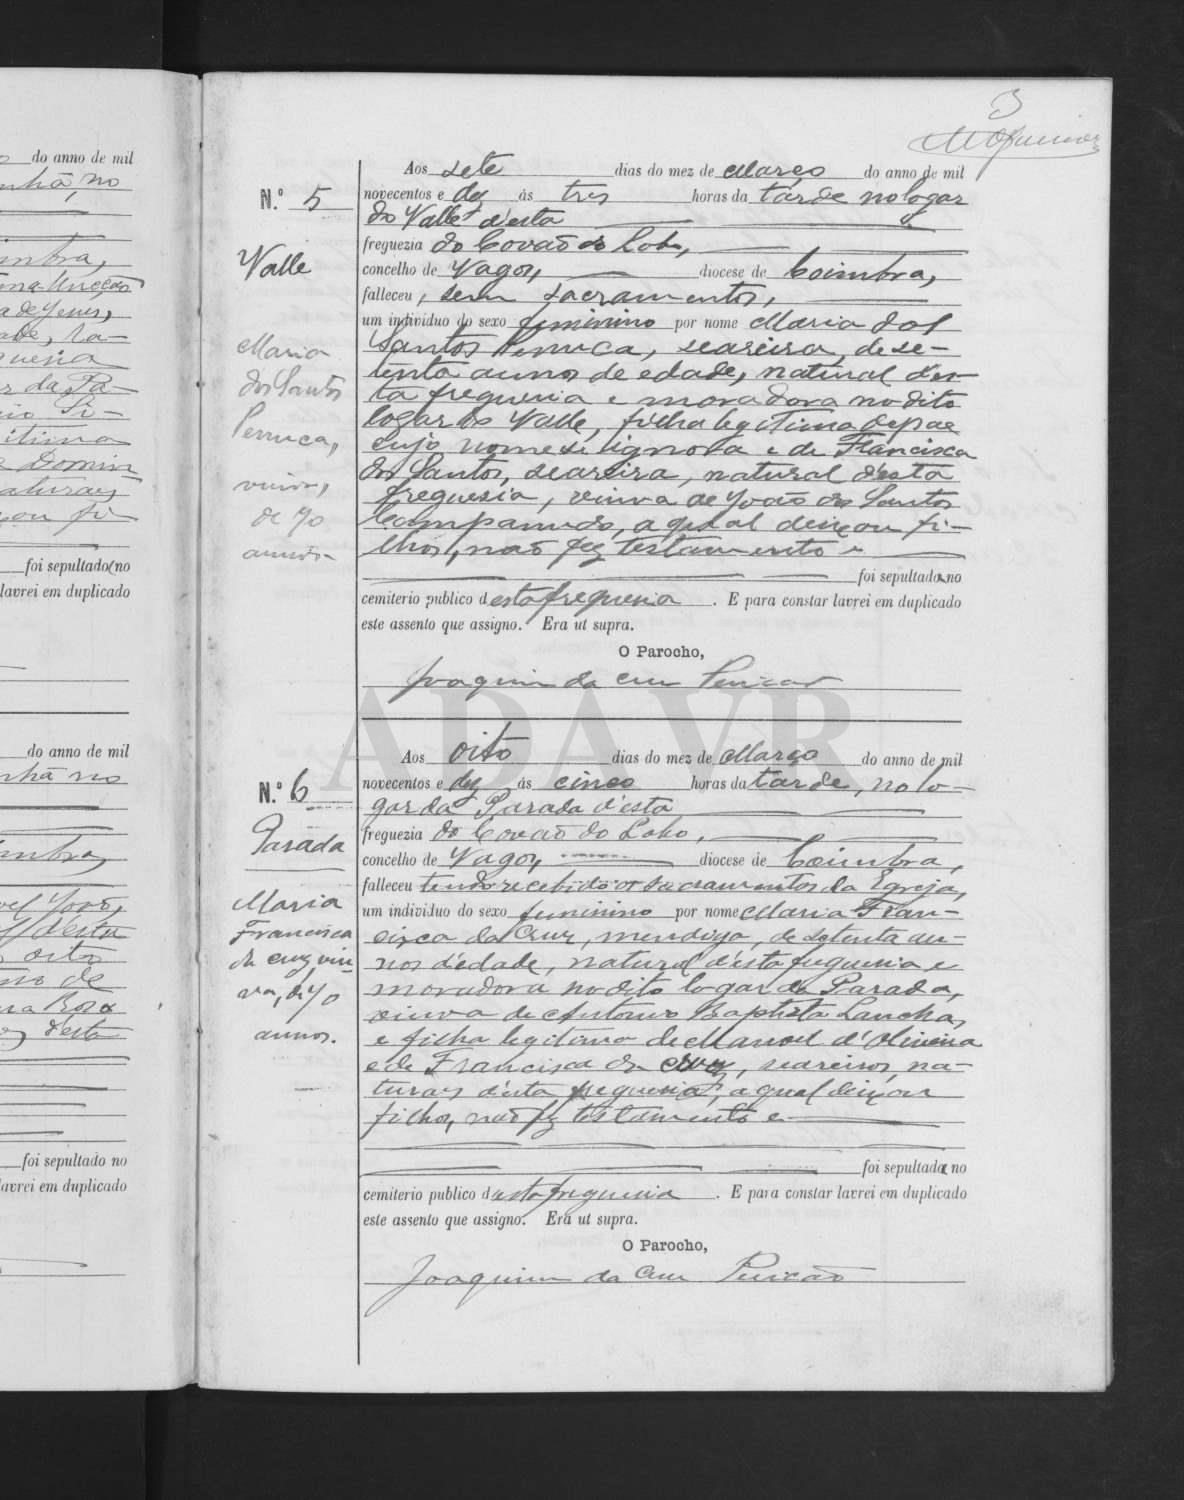 3
N.º 5
Valle
Maria
dos Santos
Perruca,
viuva,
de 70
annos.
Aos sete dias do mez de Março do anno de mil
novecentos e dez ás tres horas da tarde no logar
do Valle d'esta
freguezia do Covão do Lobo,
concelho de Vagos, diocese de Coimbra,
falleceu, sem sacramentos,
um individuo do sexo feminino por nome Maria dos
Santos Perruca, seareira, de se-
tenta annos de edade, natural d'es-
ta freguesia e moradora no dito
logar do Valle, filha legitima de pae
cujo nome se ignora e de Francisca
dos Santos, seareira, natural d'esta
freguesia, viuva de João dos Santos
Campanudo, a qual deixou fi-
lhos, não fez testamento e
foi sepultada no
cemiterio publico d'esta freguesia. E para constar lavrei em duplicado
este assento que assigno. Era ut supra.
O Parocho,
Joaquim da Cruz
N.º 6
Parada
Maria
Francisca
da Cruz, viu-
va, de 70
annos.
Aos oito dias do mez de Março do anno de mil
novecentos e dez ás cinco horas da tarde, no lo-
gar da Parada d'esta
freguezia do Covão do Lobo,
concelho de Vagos, diocese de Coimbra,
falleceu tendo recebido os sacramentos da Egreja,
um individuo do sexo feminino por nome Maria Fran-
cisca da Cruz, mendiga, de setenta an-
nos d'edade, natural d'esta freguesia e
moradora no dito logar da Parada,
viuva de Antonio Baptista Lancha,
e filha legitima de Manoel d'Oliveira
e de Francisca da Cruz, seareiros, na-
turaes d'esta freguesia, a qual deixou
filhos, não fez testamento e
foi sepultada no
cemiterio publico d'esta freguesia. E para constar lavrei em duplicado
este assento que assigno. Era ut supra.
O Parocho,
Joaquim da Cruz
ADAVR
do anno de mil
nhã, no
foi sepultado no
lavrei em duplicado
do anno de mil
nhã no
foi sepultado no
lavrei em duplicado